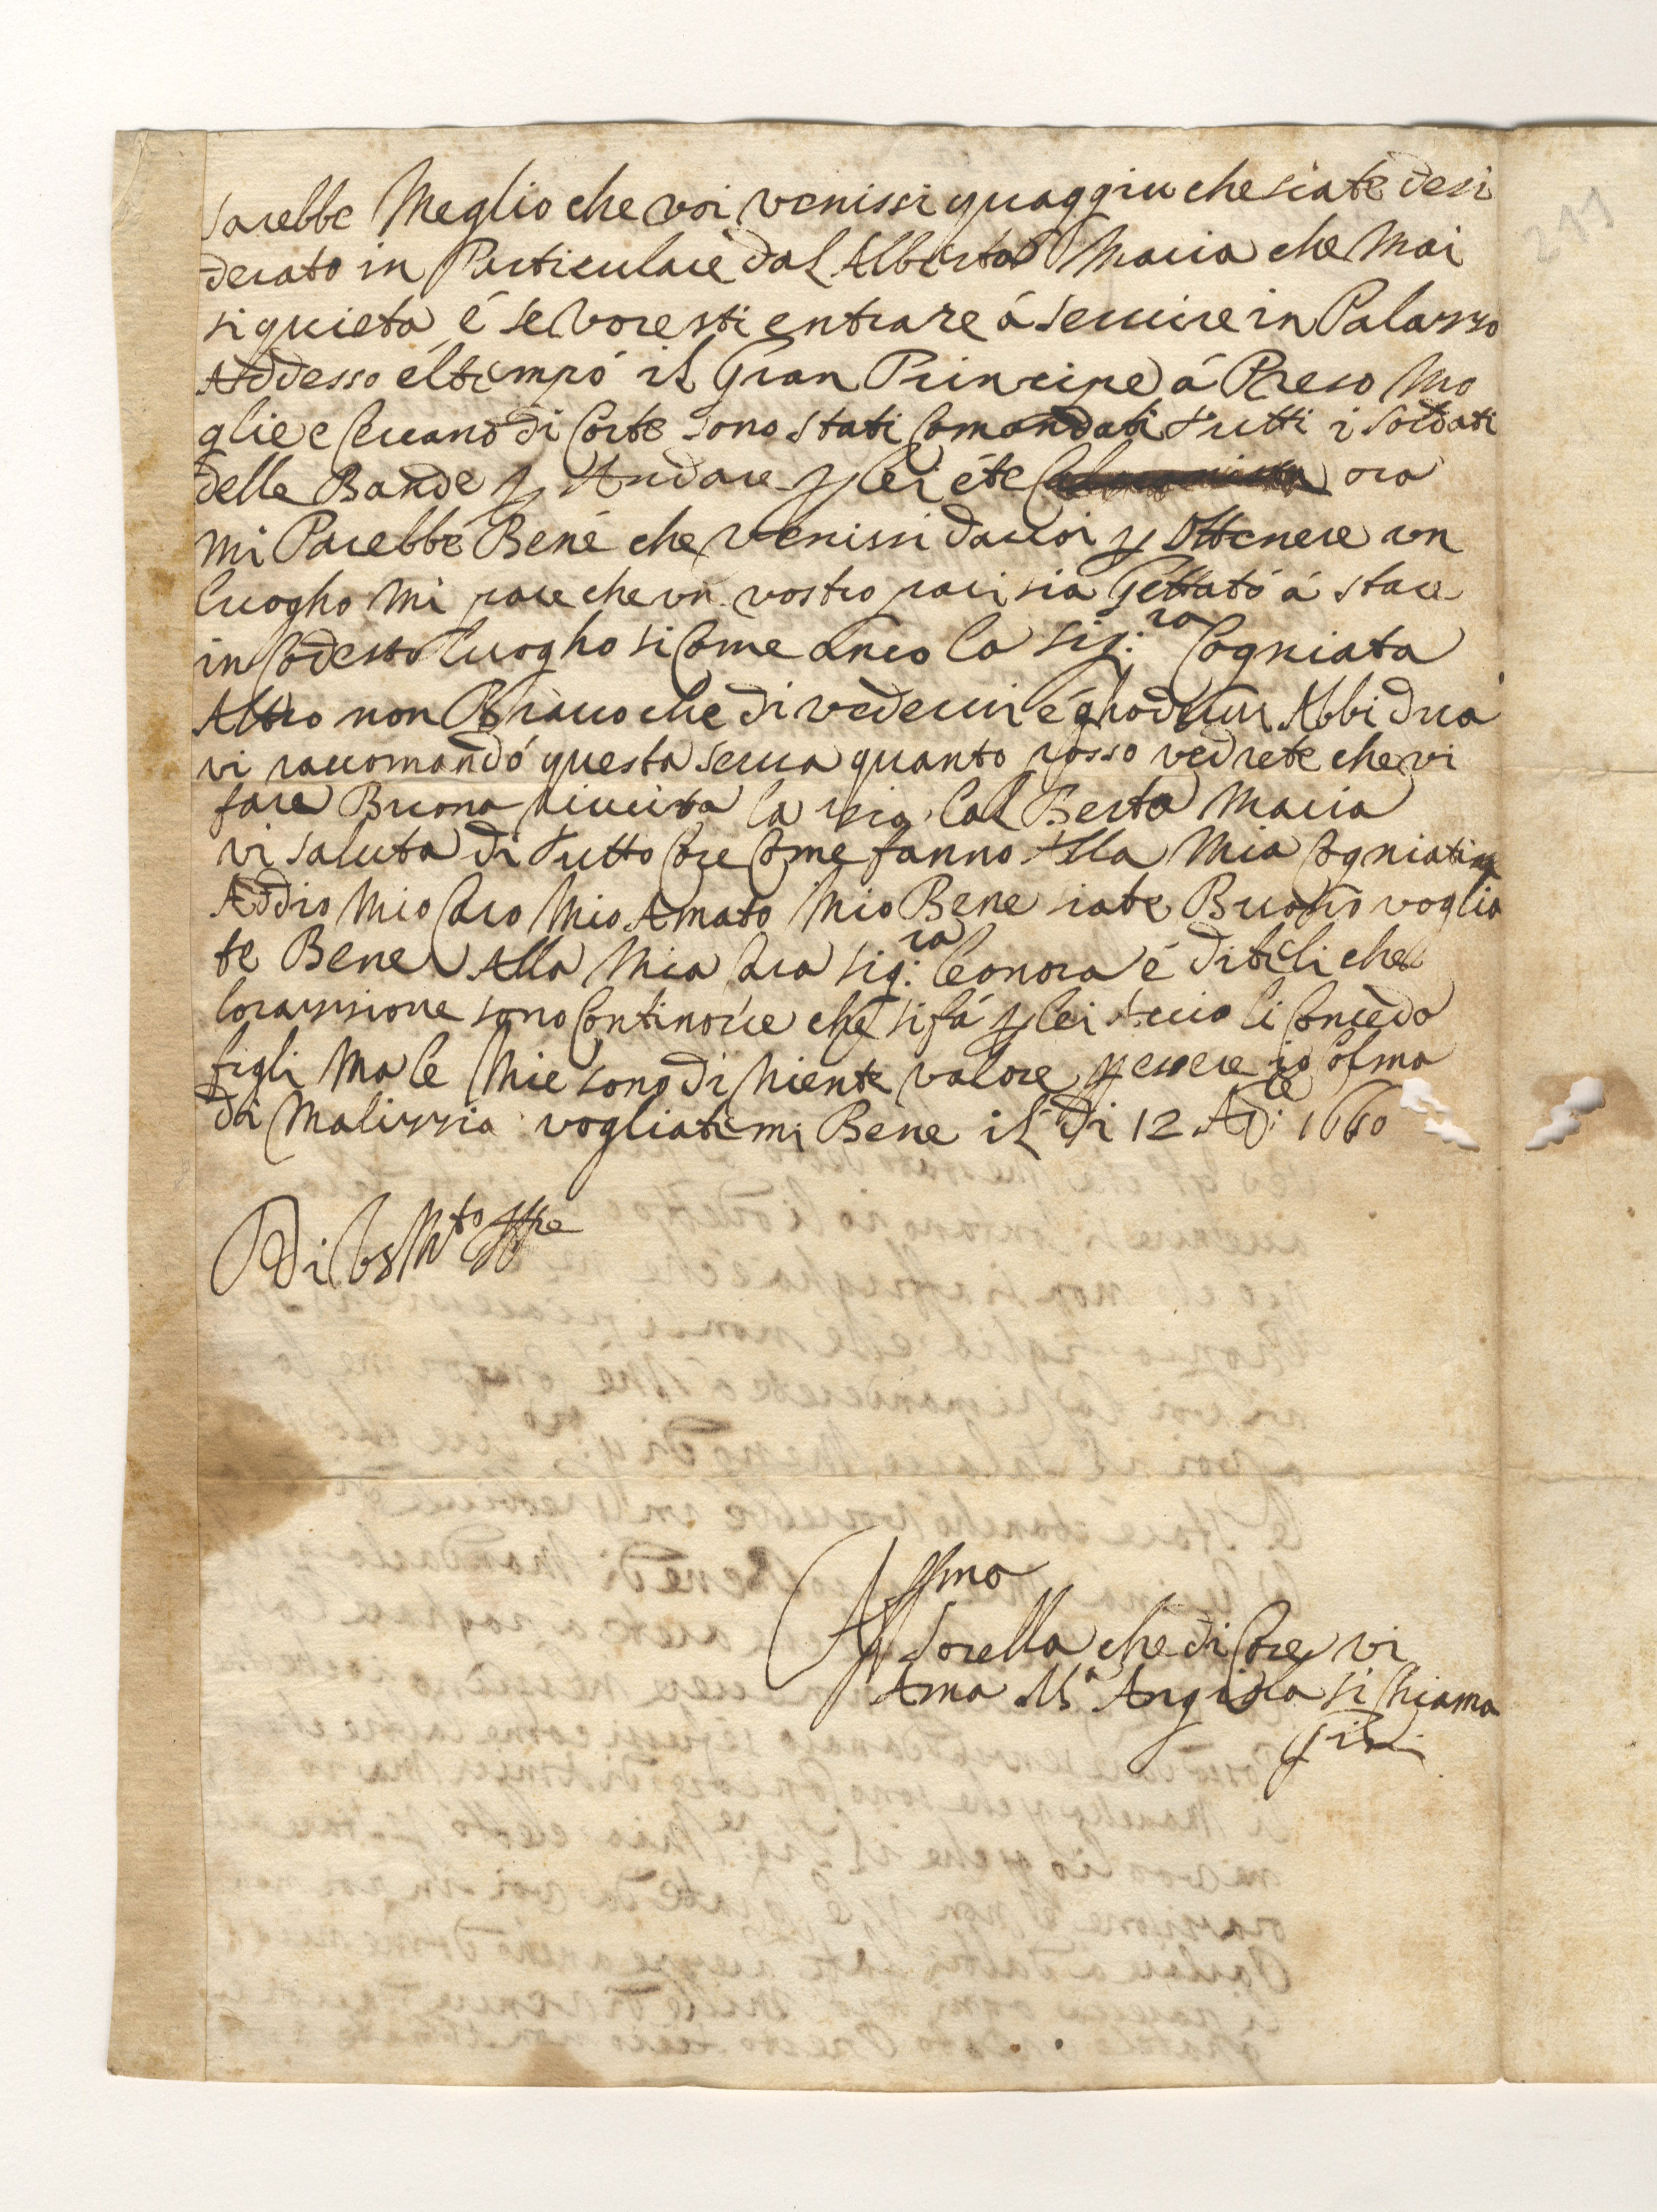 sarebbe Meglio che voi venissi quaggiu che siate desi
derato in Particulare dal Alberta Maria che Mai
si quieta é se voresti entrare á servire in Palazzo
Addesso é l tempó il Gran Principe á Preso Mo
glie e Levano di Corte sono stati Comandati tutti i soldati
delle Bande p Andare p lei éte ora
Mi Parebbe Bene che venissi da voi p Ottenere un
luogho Mi pare che un vostro pari sia Gettató á stare
in Codesto luogho si Come anco la Sig.ra Cogniata
Altro non Bramo che di vedervi é ghodervi Abbi dua
vi raccomandó questa serva quanto posso vedrete che vi
fare Buona riuscita la Sig. Lal Berta Maria
vi saluta di Tutto Core Come fanno Alla Mia Cogniatina
Addio Mio Caro Mio Amato Mio Bene siate Buono voglia
te Bene Alla Mia Cara Sig.ra Leonora é diteli che
lorazzione sono Continorie che si fá p lei li Conceda
figli Ma le Mie sono di Niente valore p essere io Colma
di Malizzia vogliatemi Bene il di 12 1660
Di VS Mto Ille
Affma
Sorella che di Core vi
Ama Ma Angiola si Chiama
211